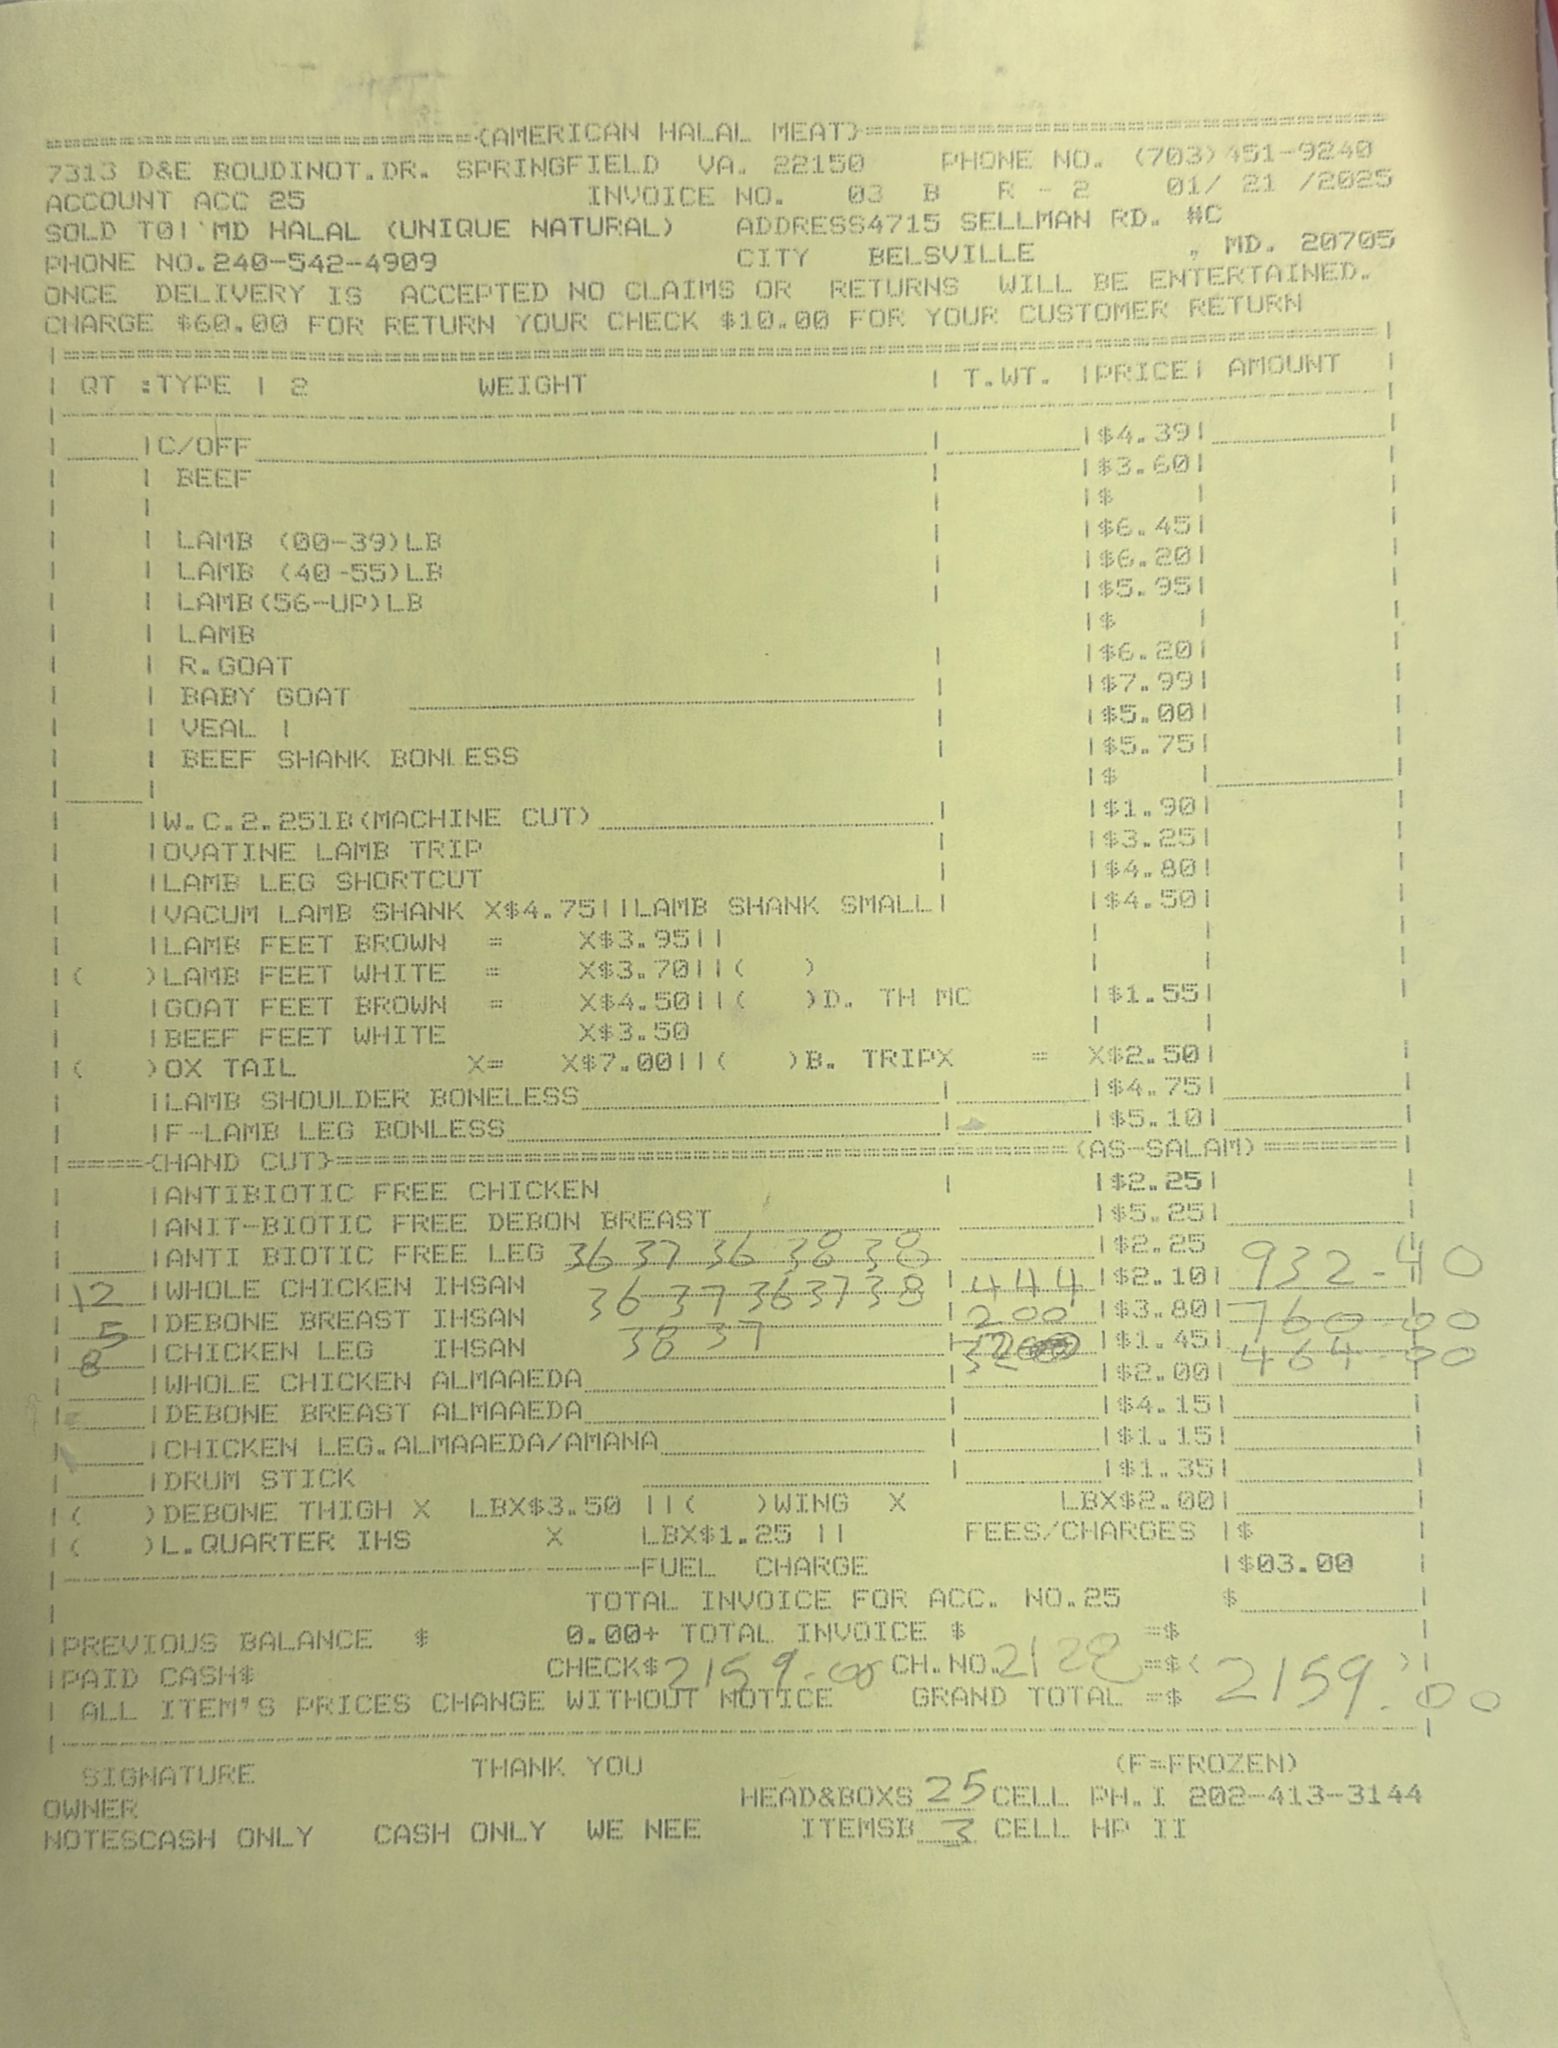 {AMERICAN HALAL MEAT}
7313 D&E BOUDINOT.DR. SPRINGFIELD VA. 22150 PHONE NO. (703)451-9240
ACCOUNT ACC 25 INVOICE NO. 03 B R - 2 01/ 21 /2025
SOLD TO| MD HALAL (UNIQUE NATURAL) ADDRESS4715 SELLMAN RD. #C
PHONE NO.240-542-4909 CITY BELSVILLE , MD. 20705
ONCE DELIVERY IS ACCEPTED NO CLAIMS OR RETURNS WILL BE ENTERTAINED.
CHARGE $60.00 FOR RETURN YOUR CHECK $10.00 FOR YOUR CUSTOMER RETURN
| QT :TYPE | 2 WEIGHT | T.WT. |PRICE| AMOUNT |
|C/OFF |$4.39|
| BEEF |$3.60|
|$ |
| LAMB (00-39)LB |$6.45|
| LAMB (40-55)LB |$6.20|
| LAMB(56-UP)LB |$5.95|
| LAMB |$ |
| R.GOAT |$6.20|
| BABY GOAT |$7.99|
| VEAL | |$5.00|
| BEEF SHANK BONLESS |$5.75|
|$ |
|W.C.2.251B(MACHINE CUT) |$1.90|
|OVATINE LAMB TRIP |$3.25|
|LAMB LEG SHORTCUT |$4.80|
|VACUM LAMB SHANK X$4.75||LAMB SHANK SMALL| |$4.50|
|LAMB FEET BROWN = X$3.95||
|( )LAMB FEET WHITE = X$3.70||( )
|GOAT FEET BROWN = X$4.50||( )D. TH MC |$1.55|
|BEEF FEET WHITE X$3.50
|( )OX TAIL X= X$7.00||( )B. TRIPX = X$2.50|
|LAMB SHOULDER BONELESS |$4.75|
|F-LAMB LEG BONLESS |$5.10|
|====={HAND CUT}=====(AS-SALAM)=======|
|ANTIBIOTIC FREE CHICKEN |$2.25|
|ANIT-BIOTIC FREE DEBON BREAST |$5.25|
|ANTI BIOTIC FREE LEG 36 37 36 38 38 |$2.25
12 |WHOLE CHICKEN IHSAN 36 37 36 37 38 | 444 |$2.10| 932-40
5 |DEBONE BREAST IHSAN 38 37 200 |$3.80| 760-00
8 |CHICKEN LEG IHSAN 320 |$1.45| 464-00
|WHOLE CHICKEN ALMAAEDA |$2.00|
|DEBONE BREAST ALMAAEDA |$4.15|
|CHICKEN LEG.ALMAAEDA/AMANA |$1.15|
|DRUM STICK |$1.35|
|( )DEBONE THIGH X LBX$3.50 ||( )WING X LBX$2.00|
|( )L.QUARTER IHS X LBX$1.25 || FEES/CHARGES |$
FUEL CHARGE |$03.00
TOTAL INVOICE FOR ACC. NO.25 $
|PREVIOUS BALANCE $ 0.00+ TOTAL INVOICE $ =$
|PAID CASH$ CHECK$ 2159.00 CH.NO. 2128 =$< 2159.00 >|
| ALL ITEM'S PRICES CHANGE WITHOUT NOTICE GRAND TOTAL =$
SIGNATURE THANK YOU (F=FROZEN)
OWNER HEAD&BOXS 25 CELL PH.I 202-413-3144
NOTESCASH ONLY CASH ONLY WE NEE ITEMSB 3 CELL HP II